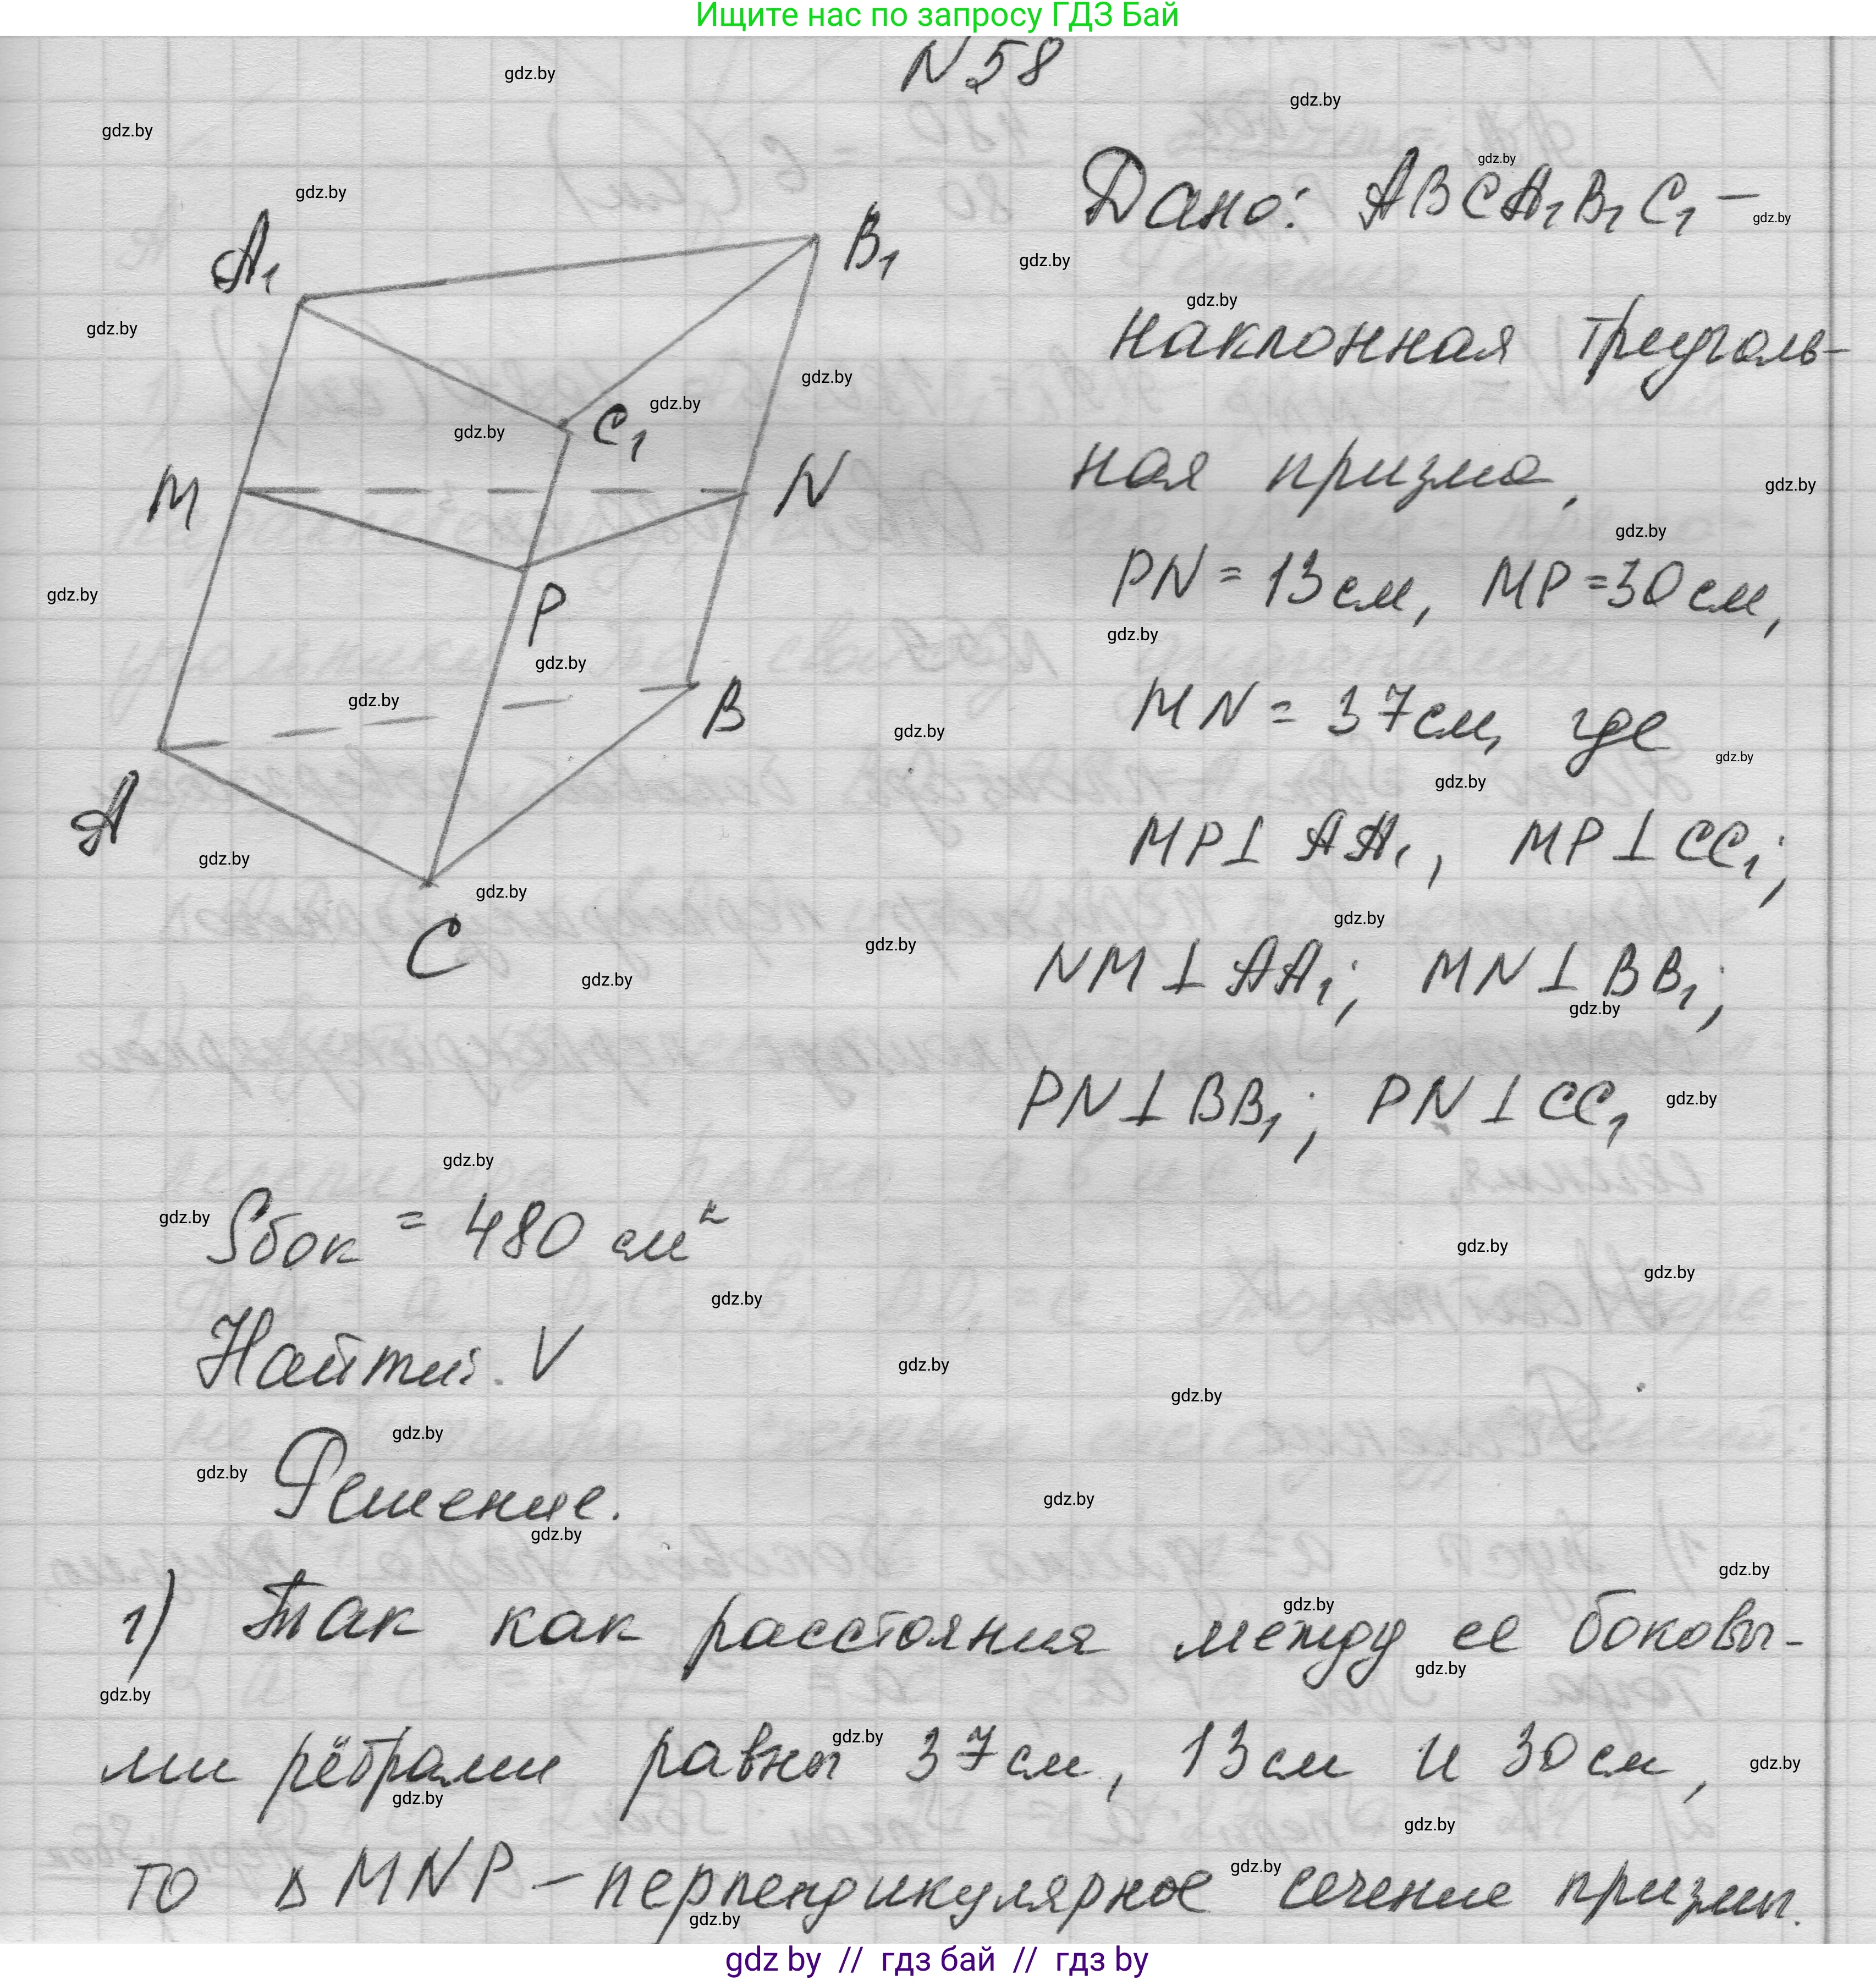 Ищите нас по запросу ГДЗ Бай
N 58
A₁
B₁
C₁
M
N
P
A
B
C
Дано: ABCA₁B₁C₁ –
наклонная треуголь-
ная призма,
PN = 13 см, MP = 30 см,
MN = 37 см, где
MP ⊥ AA₁, MP ⊥ CC₁;
NM ⊥ AA₁; MN ⊥ BB₁;
PN ⊥ BB₁; PN ⊥ CC₁
Sбок = 480 см²
Найти: V
Решение.
1) Так как расстояния между ее боковы-
ми рёбрами равны 37 см, 13 см и 30 см,
то △ MNP – перпендикулярное сечение призмы.
gdz by // гдз бай // гдз by